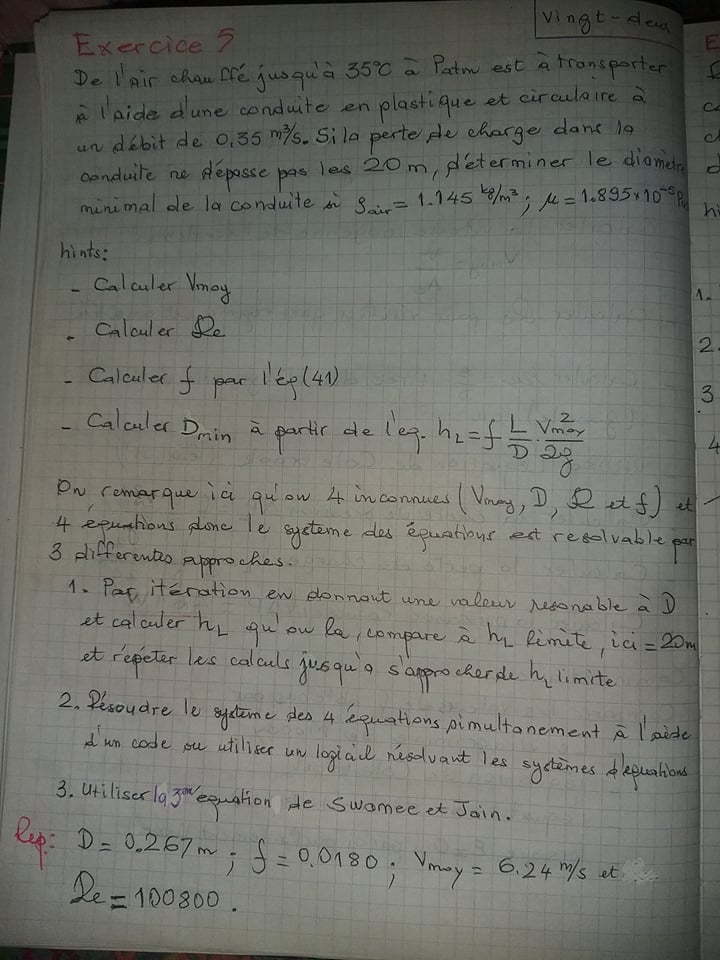 Vingt-deux
Exercice 5
De l'air chauffé jusqu'à 35°C à Patm est à transporter
à l'aide d'une conduite en plastique et circulaire à
un débit de 0,35 m³/s. Si la perte de charge dans la
conduite ne dépasse pas les 20 m, déterminer le diamètre
minimal de la conduite si ρair = 1.145 kg/m³ ; μ = 1.895×10⁻⁵
hints:
- Calculer Vmoy
- Calculer Re
- Calculer f par l'éq (41)
- Calculer Dmin à partir de l'eq. hL = f L/D · Vmoy²/2g
On remarque ici qu'on 4 inconnues (Vmoy, D, R et f) et
4 équations donc le système des équations est resolvable par
3 differentes approches.
1. Par itération en donnant une valeur resonable à D
et calculer hL qu'on la, compare à hL limite, ici = 20m
et répéter les calculs jusqu'a s'approcher de hL limite
2. Résoudre le système des 4 équations simultanement à l'aide
d'un code ou utiliser un logiciel résolvant les systèmes d'equations
3. Utiliser la 3em equation de Swamee et Jain.
Rep: D = 0.267 m ; f = 0.0180 ; Vmoy = 6.24 m/s et
Re = 100800.
1.
2.
3
4